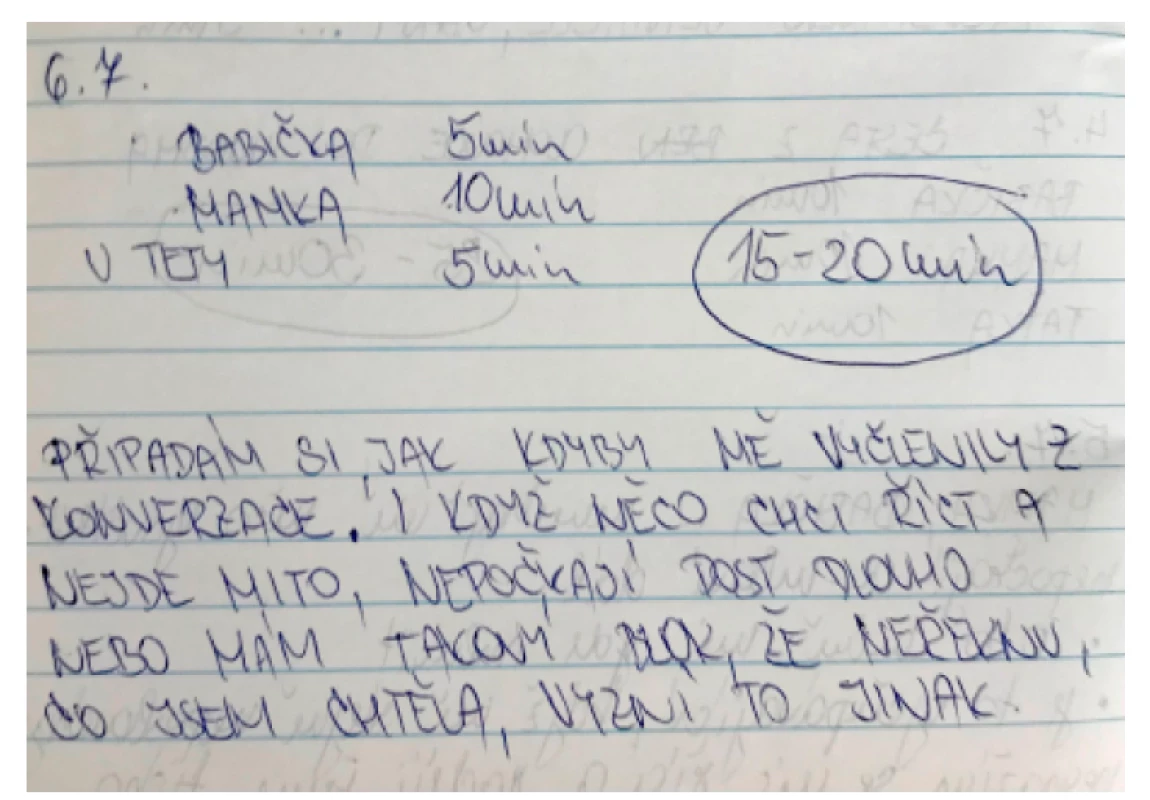 6.7.
BABIČKA 5min
MAMKA 10min
U TETY 5min 15-20min
PŘIPADÁM SI, JAK KDYBY MĚ VYČLENILY Z
KONVERZACE. I KDYŽ NĚCO CHCI ŘÍCT A
NEJDE MI TO, NEPOČKAJÍ DOST DLOUHO
NEBO MÁM TAKOVÝ BLOK, ŽE NEŘEKNU,
CO JSEM CHTĚLA, VYZNÍ TO JINAK.